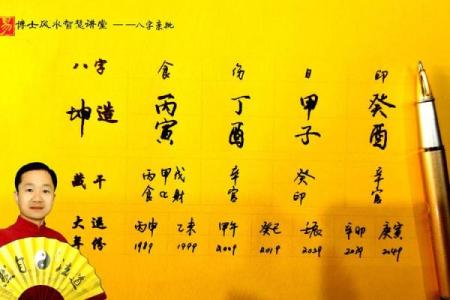 易 博士风水智慧讲堂 ——八字亲批
八字 食 伤 日 印
坤造 丙寅 丁酉 甲子 癸酉
藏干 丙 甲 戊 辛 癸 辛
食 比 财 官 印 官
大运 丙申 乙未 甲午 癸巳 壬辰 辛卯 庚寅
年份 1989 1999 2009 2019 2029 2039 2049